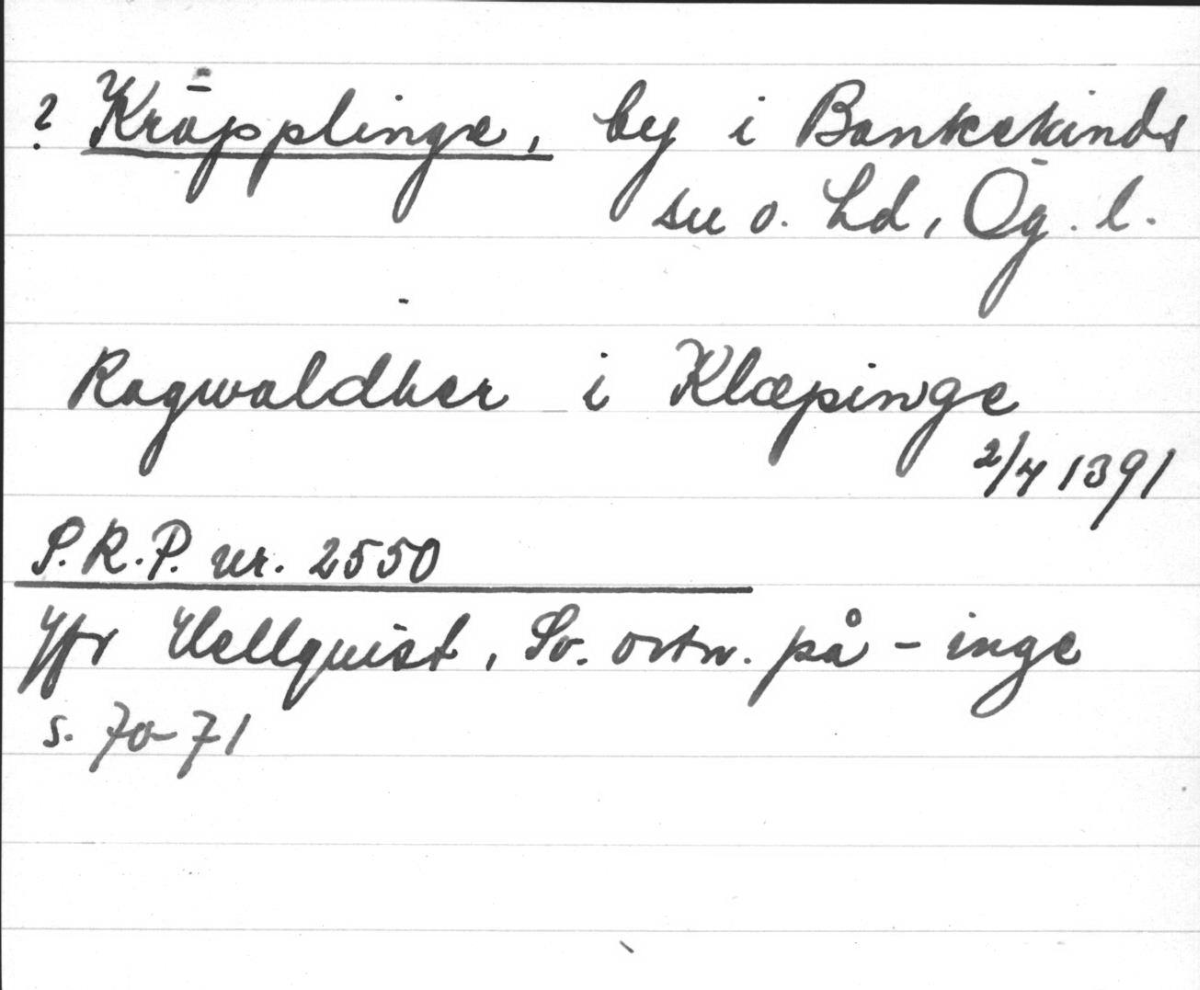 ? Kräpplinge, by i Bankekinds
sn o. hd, Ög. l.
Ragwaldher i Klæpinge
2/4 1391
S.R.P. nr. 2550
Jfr Hellquist, Sv. ortn. på -inge
s. 70-71